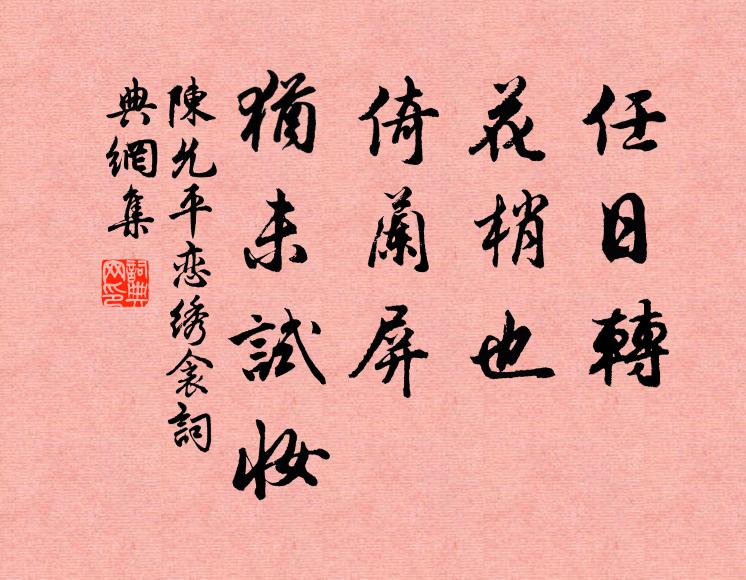 任日轉
花梢也
倚蘭屏
猶未試妝
陳允平恋绣衾詞
典網集
詞典網印